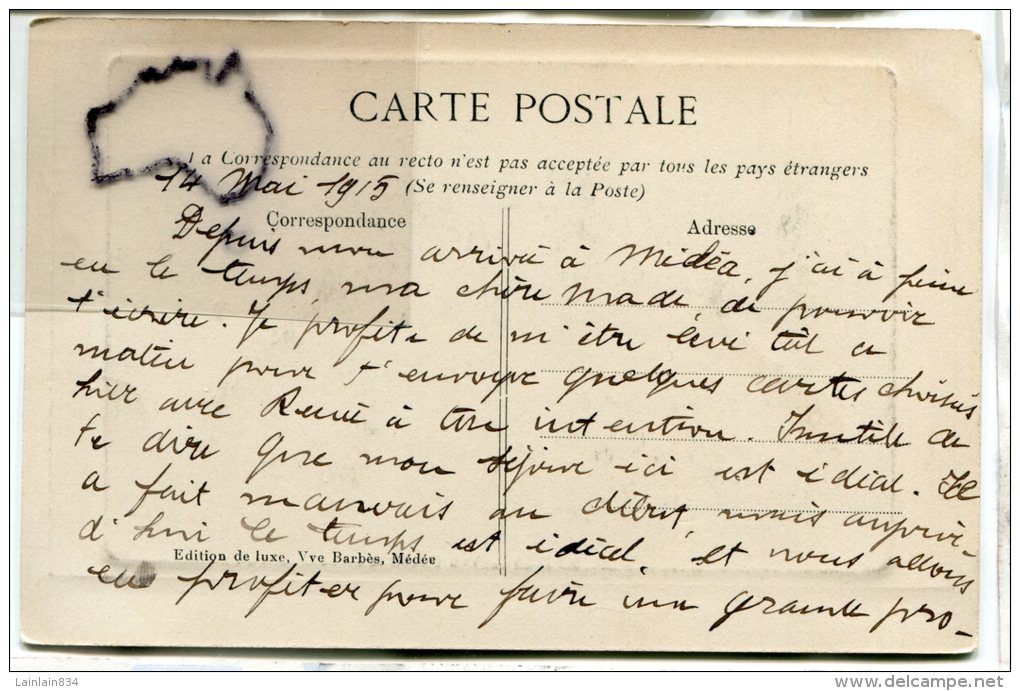 CARTE POSTALE
La Correspondance au recto n'est pas acceptée par tous les pays étrangers
14 Mai 1915 (Se renseigner à la Poste)
Correspondance
Adresse
Depuis mon arrivée à Médéa, j'ai à peine
eu le temps ma chère Made de pouvoir
t'écrire. Je profite de m'être levé tôt ce
matin pour t'envoyer quelques cartes choisies
hier avec René à ton intention. Inutile de
te dire que mon séjour ici est idéal. Il
a fait mauvais au début, mais aujour-
d'hui le temps est idéal, et nous allons
Edition de luxe, Vve Barbès, Médée
en profiter pour faire une grande pro-
Lainlain834
delcampe.net